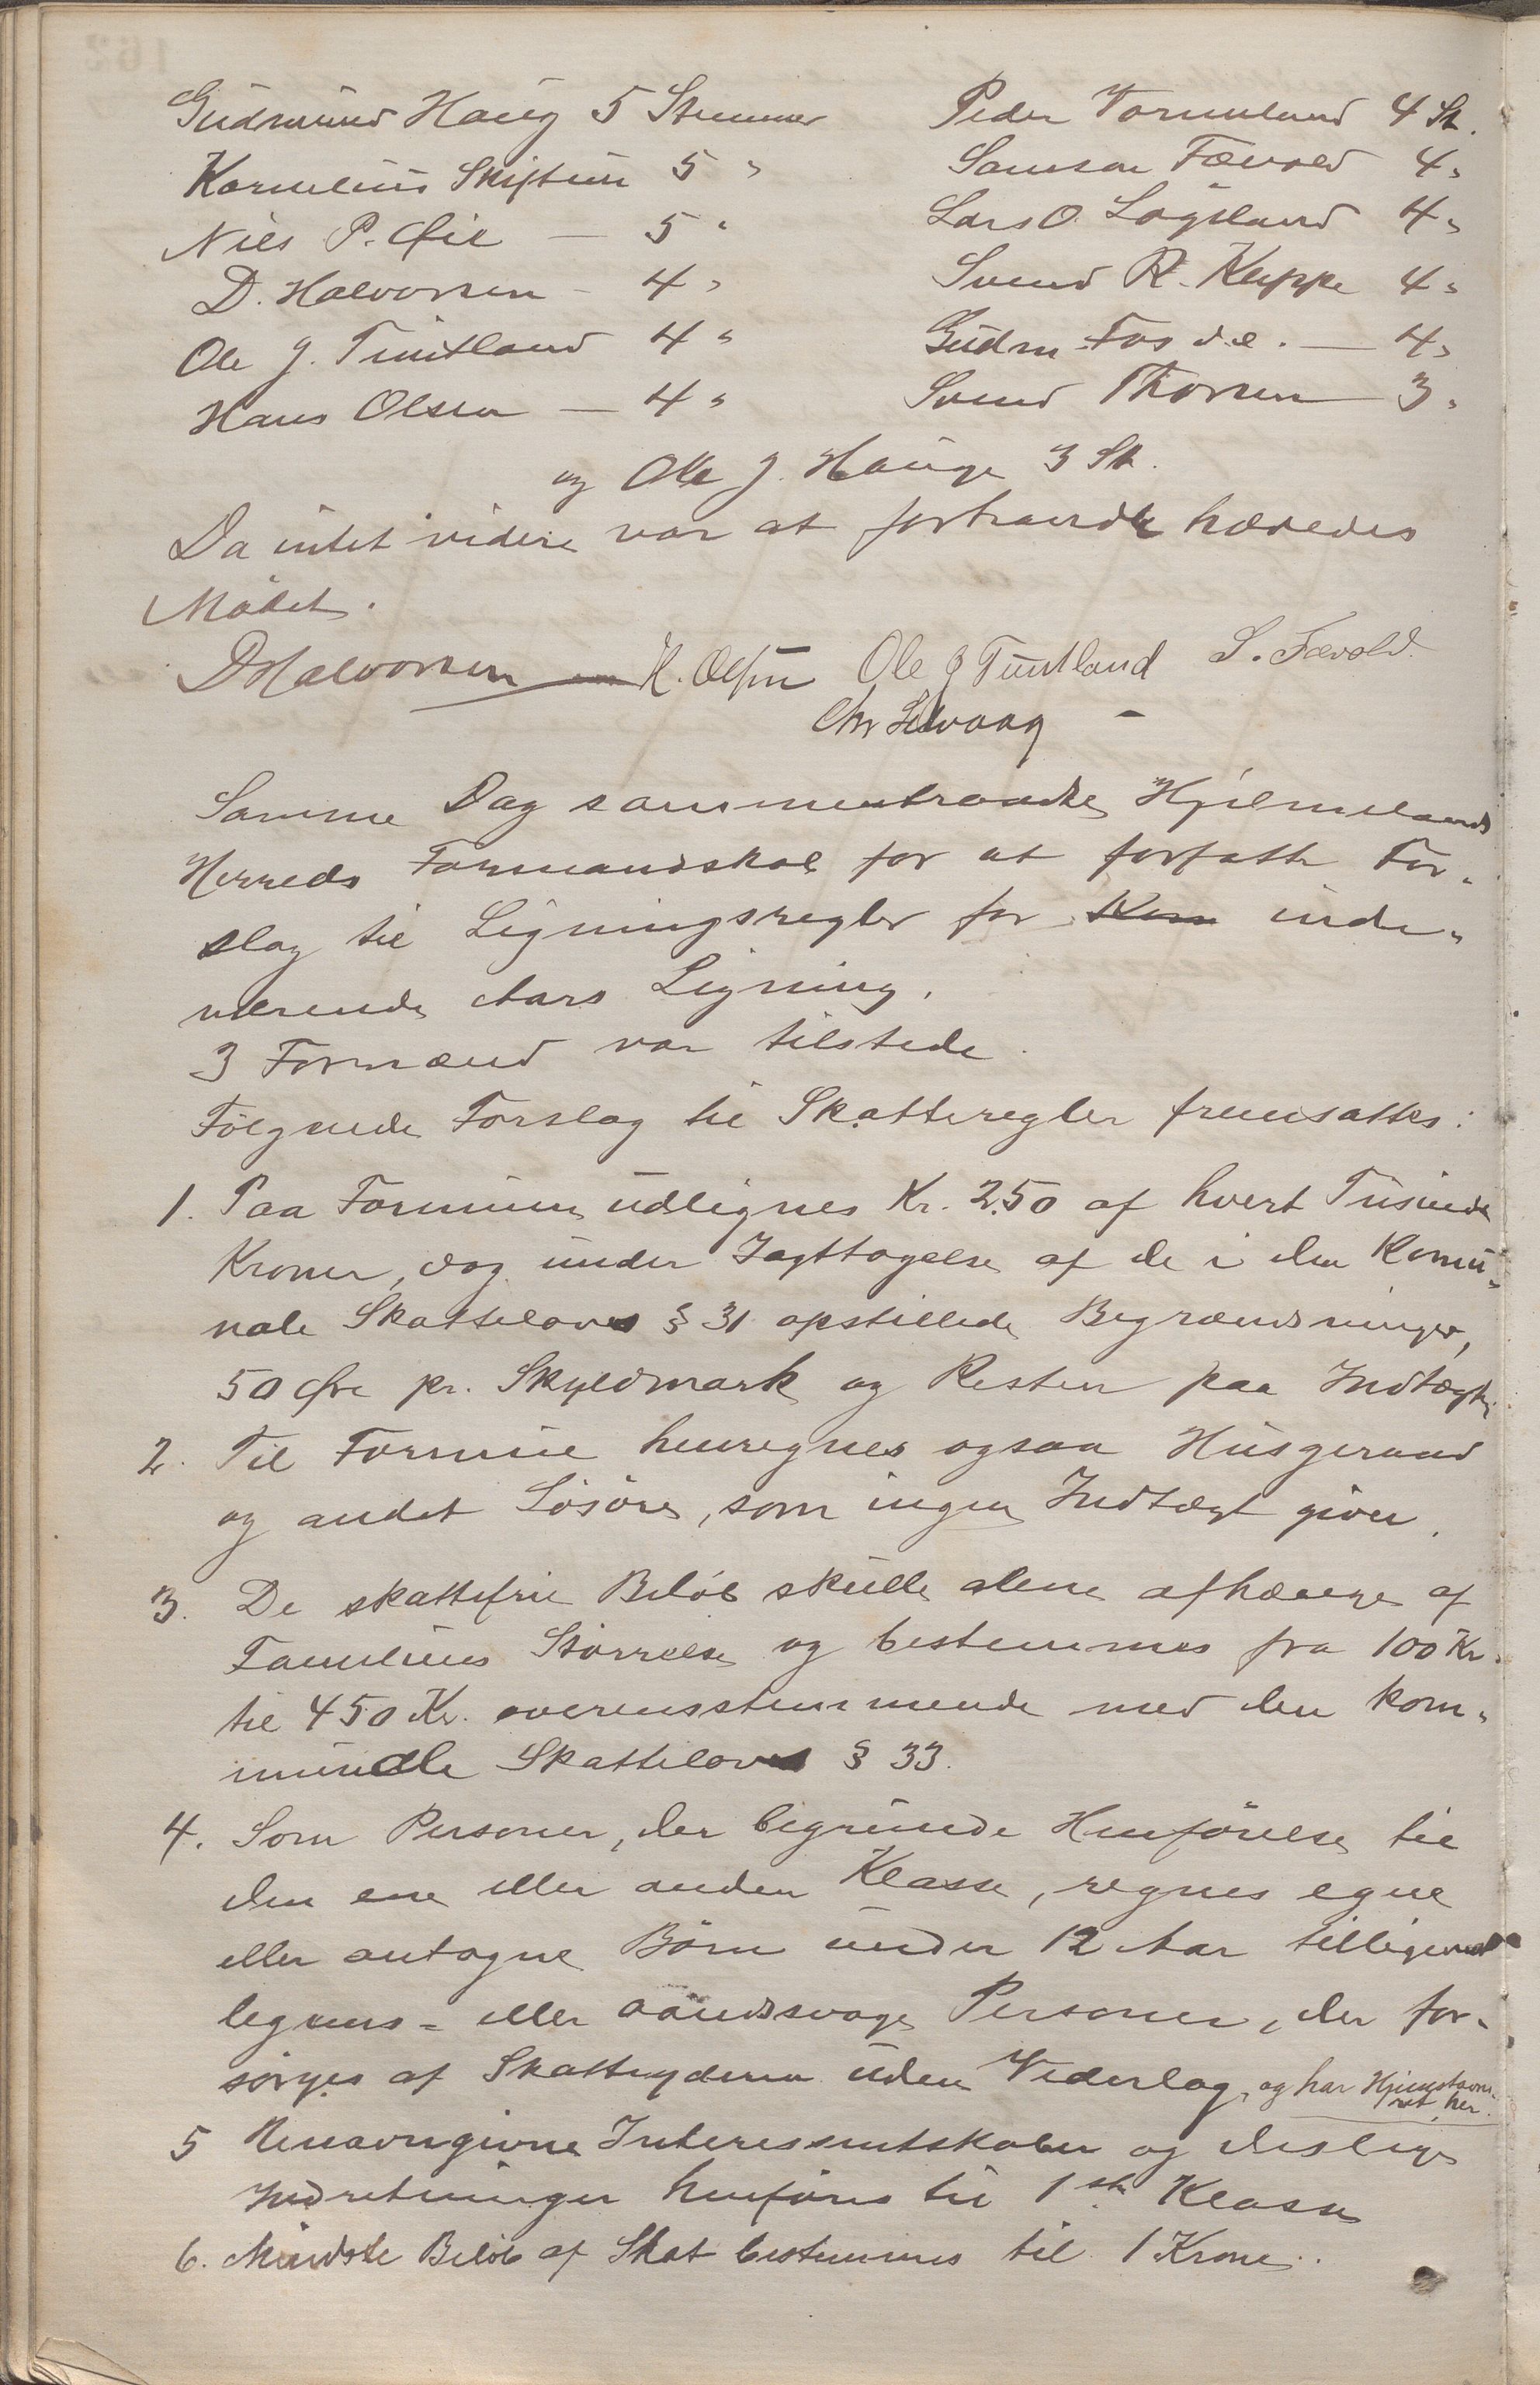 Gudmund Haug 5 Stemmer
Kornelius Skiftun 5 "
Niels P. Øie — 5 "
D. Halvorsen - 4 "
Ole J. Tuntland 4 "
Hans Olsen — 4 "
Peder Vormeland 4 St.
Samson Fævold 4 "
Lars O. Laugaland 4 "
Svend R. Kleppe 4 "
Gudm Fosdal. — 4 "
Svend Thorsen — 3 "
og Ole J. Hauge 3 St.
Da intet videre var at forhandle hævedes
Mödet.
D Halvorsen H. Olsen Ole J Tuntland S. Fævold.
Chr Selvaag -
Samme Dag sammentraadte Hjelmelands
Herreds Formandskab for at forfatte For-
slag til Ligningsregler for Kom inde-
værende Aars Ligning.
3 Formænd var tilstede.
Fölgende Forslag til Skatteregler fremsattes:
1. Paa Formuen udlignes Kr. 2.50 af hvert Tusinde
Kroner, dog under Iagttagelse af de i den Komu-
nale Skattelovs § 31 opstillede Begrændsninger,
50 Øre pr. Skyldmark og Resten paa Indtægt.
2. Til Formue henregnes ogsaa Husgeraad
og andet Lösöre, som ingen Indtægt giver.
3. De skattefrie Belöb skulle alene afhænge af
Familiens Störrelse og bestemmes fra 100 Kr.
til 450 Kr. overensstemmende med den kom-
munale Skattelovs § 33.
4. Som Personer, der begrunde Henförelse til
den ene eller anden Klasse, regnes egne
eller antagne Börn under 12 Aar tilligemed
legems- eller aandssvage Personer, der for-
sörges af Skatteyderen uden Vederlag, og har Hjemstavns-
ret her.
5 Unavngivne Interessentskaber og deslige
Indretninger henföres til 1ste Klasse
6. Mindste Belöb af Skat bestemmes til 1 Krone.